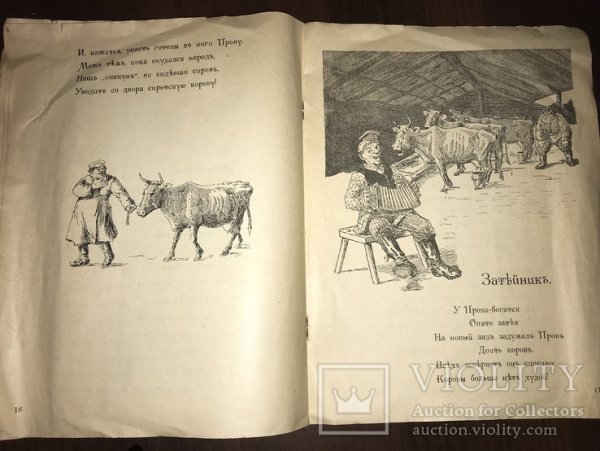 И, кажется, упасть готовы въ ноги Прову.
Межъ тѣмъ, пока очухался народъ,
Нашъ „опекунъ“, не видѣвши сиротъ,
Уводитъ со двора сиротскую корову!
16
Затѣйникъ.
У Прова-богатея
Опять затѣя
На новый ладъ задумалъ Провъ
Доить коровъ.
Всѣхъ
онъ
Коровы больше нѣтъ худой!
17
VIOLITY
Auction for Collectors
auction.violity.com